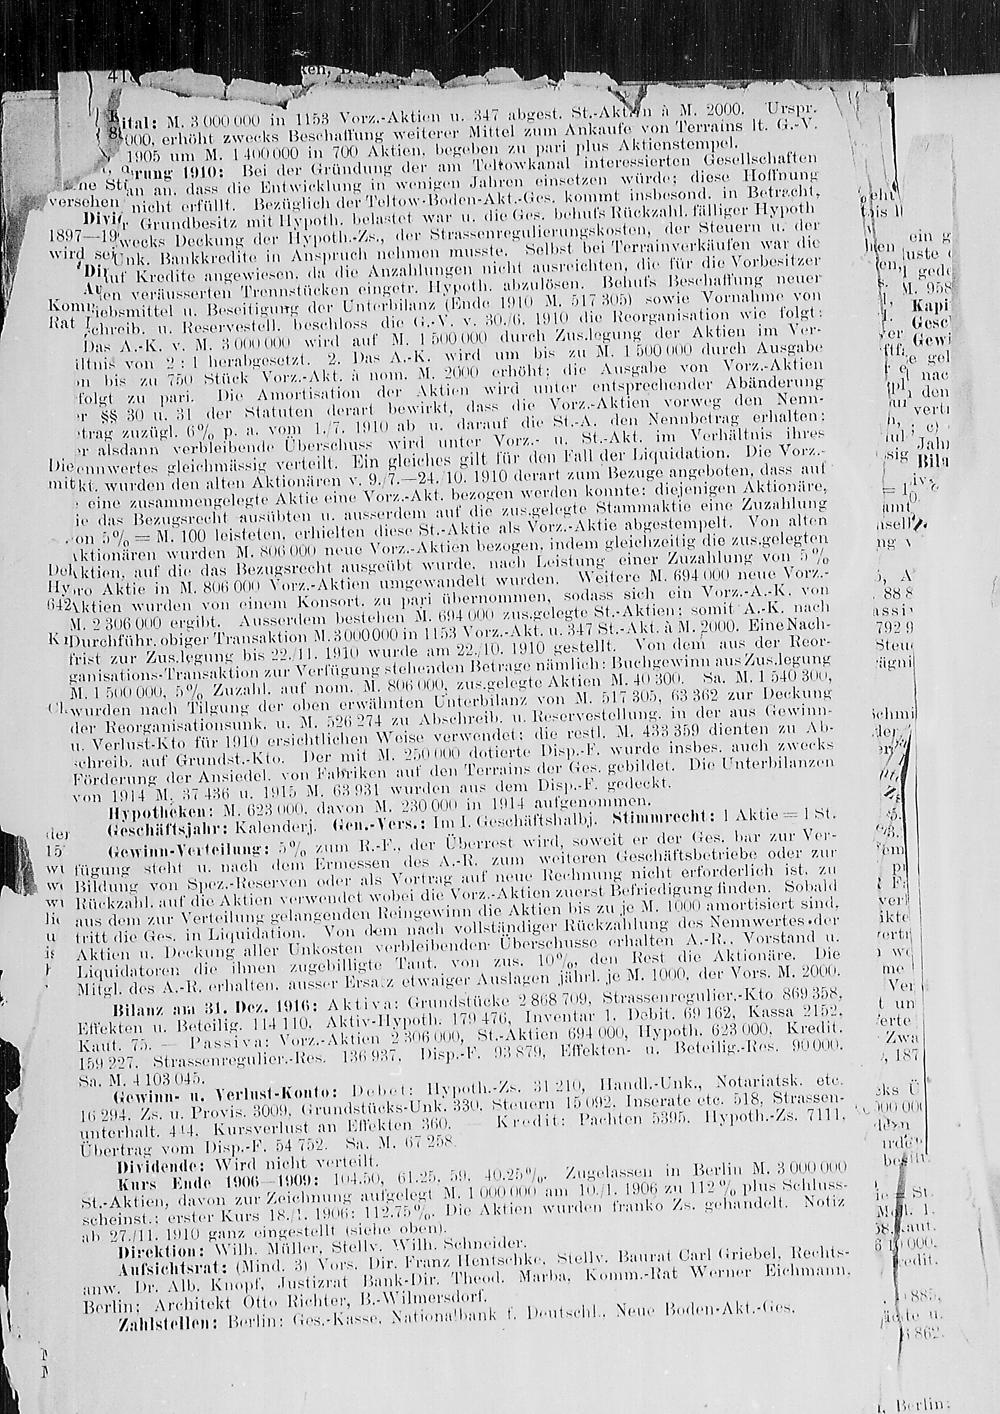 ital: M. 3 000 000 in 1153 Vorz.-Aktien u. 347 abgest. St.-Aktien à M. 2000. Urspr.
000, erhöht zwecks Beschaffung weiterer Mittel zum Ankaufe von Terrains lt. G.-V.
1905 um M. 1 400 000 in 700 Aktien, begeben zu pari plus Aktienstempel.
rung 1910: Bei der Gründung der am Teltowkanal interessierten Gesellschaften
an an, dass die Entwicklung in wenigen Jahren einsetzen würde; diese Hoffnung
versehen nicht erfüllt. Bezüglich der Teltow-Boden-Akt.-Ges. kommt insbesond. in Betracht,
Divi r Grundbesitz mit Hypoth. belastet war u. die Ges. behufs Rückzahl. fälliger Hypoth
1897—19 wecks Deckung der Hypoth.-Zs., der Strassenregulierungskosten, der Steuern u. der
wird se Unk. Bankkredite in Anspruch nehmen musste. Selbst bei Terrainverkäufen war die
Di uf Kredite angewiesen, da die Anzahlungen nicht ausreichten, die für die Vorbesitzer
Au en veräusserten Trennstücken eingetr. Hypoth. abzulösen. Behufs Beschaffung neuer
Komm iebsmittel u. Beseitigung der Unterbilanz (Ende 1910 M. 517 305) sowie Vornahme von
Rat chreib. u. Reservestell. beschloss die G.-V. v. 30./6. 1910 die Reorganisation wie folgt:
Das A.-K. v. M. 3 000 000 wird auf M. 1 500 000 durch Zus.legung der Aktien im Ver-
ältnis von 2 : 1 herabgesetzt. 2. Das A.-K. wird um bis zu M. 1 500 000 durch Ausgabe
n bis zu 750 Stück Vorz.-Akt. à nom. M. 2000 erhöht; die Ausgabe von Vorz.-Aktien
folgt zu pari. Die Amortisation der Aktien wird unter entsprechender Abänderung
r §§ 30 u. 31 der Statuten derart bewirkt, dass die Vorz.-Aktien vorweg den Nenn-
trag zuzügl. 6% p. a. vom 1./7. 1910 ab u. darauf die St.-A. den Nennbetrag erhalten;
r alsdann verbleibende Überschuss wird unter Vorz.- u. St.-Akt. im Verhältnis ihres
Die ennwertes gleichmässig verteilt. Ein gleiches gilt für den Fall der Liquidation. Die Vorz.-
mit kt. wurden den alten Aktionären v. 9./7.—24./10. 1910 derart zum Bezuge angeboten, dass auf
eine zusammengelegte Aktie eine Vorz.-Akt. bezogen werden konnte; diejenigen Aktionäre,
ie das Bezugsrecht ausübten u. ausserdem auf die zus.gelegte Stammaktie eine Zuzahlung
on 5% = M. 100 leisteten, erhielten diese St.-Aktie als Vorz.-Aktie abgestempelt. Von alten
ktionären wurden M. 806 000 neue Vorz.-Aktien bezogen, indem gleichzeitig die zus.gelegten
Del ktien, auf die das Bezugsrecht ausgeübt wurde, nach Leistung einer Zuzahlung von 5%
Hy ro Aktie in M. 806 000 Vorz.-Aktien umgewandelt wurden. Weitere M. 694 000 neue Vorz.-
642 Aktien wurden von einem Konsort. zu pari übernommen, sodass sich ein Vorz.-A.-K. von
M. 2 306 000 ergibt. Ausserdem bestehen M. 694 000 zus.gelegte St.-Aktien; somit A.-K. nach
K Durchführ. obiger Transaktion M. 3 000 000 in 1153 Vorz.-Akt. u. 347 St.-Akt. à M. 2000. Eine Nach-
frist zur Zus.legung bis 22./11. 1910 wurde am 22./10. 1910 gestellt. Von dem aus der Reor-
ganisations-Transaktion zur Verfügung stehenden Betrage nämlich: Buchgewinn aus Zus.legung
M. 1 500 000, 5% Zuzahl. auf nom. M. 806 000, zus.gelegte Aktien M. 40 300. Sa. M. 1 540 300,
Cl. wurden nach Tilgung der oben erwähnten Unterbilanz von M. 517 305, 63 362 zur Deckung
der Reorganisationsunk. u. M. 526 274 zu Abschreib. u. Reservestellung. in der aus Gewinn-
u. Verlust-Kto für 1910 ersichtlichen Weise verwendet; die restl. M. 433 359 dienten zu Ab-
schreib. auf Grundst.-Kto. Der mit M. 250 000 dotierte Disp.-F. wurde insbes. auch zwecks
Förderung der Ansiedel. von Fabriken auf den Terrains der Ges. gebildet. Die Unterbilanzen
von 1914 M. 37 436 u. 1915 M. 63 931 wurden aus dem Disp.-F. gedeckt.
Hypotheken: M. 623 000, davon M. 230 000 in 1914 aufgenommen.
Geschäftsjahr: Kalenderj. Gen.-Vers.: Im I. Geschäftshalbj. Stimmrecht: 1 Aktie = 1 St.
Gewinn-Verteilung: 5% zum R.-F., der Überrest wird, soweit er der Ges. bar zur Ver-
fügung steht u. nach dem Ermessen des A.-R. zum weiteren Geschäftsbetriebe oder zur
Bildung von Spez.-Reserven oder als Vortrag auf neue Rechnung nicht erforderlich ist, zu
Rückzahl. auf die Aktien verwendet wobei die Vorz.-Aktien zuerst Befriedigung finden. Sobald
aus dem zur Verteilung gelangenden Reingewinn die Aktien bis zu je M. 1000 amortisiert sind,
tritt die Ges. in Liquidation. Von dem nach vollständiger Rückzahlung des Nennwertes der
Aktien u. Deckung aller Unkosten verbleibenden Überschusse erhalten A.-R., Vorstand u.
Liquidatoren die ihnen zugebilligte Tant. von zus. 10%, den Rest die Aktionäre. Die
Mitgl. des A.-R. erhalten, ausser Ersatz etwaiger Auslagen jährl. je M. 1000, der Vors. M. 2000.
Bilanz am 31. Dez. 1916: Aktiva: Grundstücke 2 868 709, Strassenregulier.-Kto 869 358,
Effekten u. Beteilig. 114 110, Aktiv-Hypoth. 179 476, Inventar 1, Debit. 69 162, Kassa 2152,
Kaut. 75. — Passiva: Vorz.-Aktien 2 306 000, St.-Aktien 694 000, Hypoth. 623 000, Kredit.
159 227, Strassenregulier.-Res. 136 937, Disp.-F. 93 879, Effekten- u. Beteilig.-Res. 90 000.
Sa. M. 4 103 045.
Gewinn- u. Verlust-Konto: Debet: Hypoth.-Zs. 31 210, Handl.-Unk., Notariatsk. etc.
16 294, Zs. u. Provis. 3009, Grundstücks-Unk. 330, Steuern 15 092, Inserate etc. 518, Strassen-
unterhalt. 444, Kursverlust an Effekten 360. — Kredit: Pachten 5395, Hypoth.-Zs. 7111,
Übertrag vom Disp.-F. 54 752. Sa. M. 67 258.
Dividende: Wird nicht verteilt.
Kurs Ende 1906—1909: 104.50, 61.25, 59, 40.25%. Zugelassen in Berlin M. 3 000 000
St.-Aktien, davon zur Zeichnung aufgelegt M. 1 000 000 am 10./1. 1906 zu 112% plus Schluss-
scheinst.; erster Kurs 18./1. 1906: 112.75%. Die Aktien wurden franko Zs. gehandelt. Notiz
ab 27./11. 1910 ganz eingestellt (siehe oben).
Direktion: Wilh. Müller, Stellv. Wilh. Schneider.
Aufsichtsrat: (Mind. 3) Vors. Dir. Franz Hentschke, Stellv. Baurat Carl Griebel, Rechts-
anw. Dr. Alb. Knopf, Justizrat Bank-Dir. Theod. Marba, Komm.-Rat Werner Eichmann,
Berlin; Architekt Otto Richter, B.-Wilmersdorf.
Zahlstellen: Berlin: Ges.-Kasse, Nationalbank f. Deutschl., Neue Boden-Akt.-Ges.
ein g
M. 958
Kapi
Gesc
Gewi
nac
den
verti
Jah
Bila
888
792 9
Steu
Zwa
187
10 000.
885,
862.
Berlin: